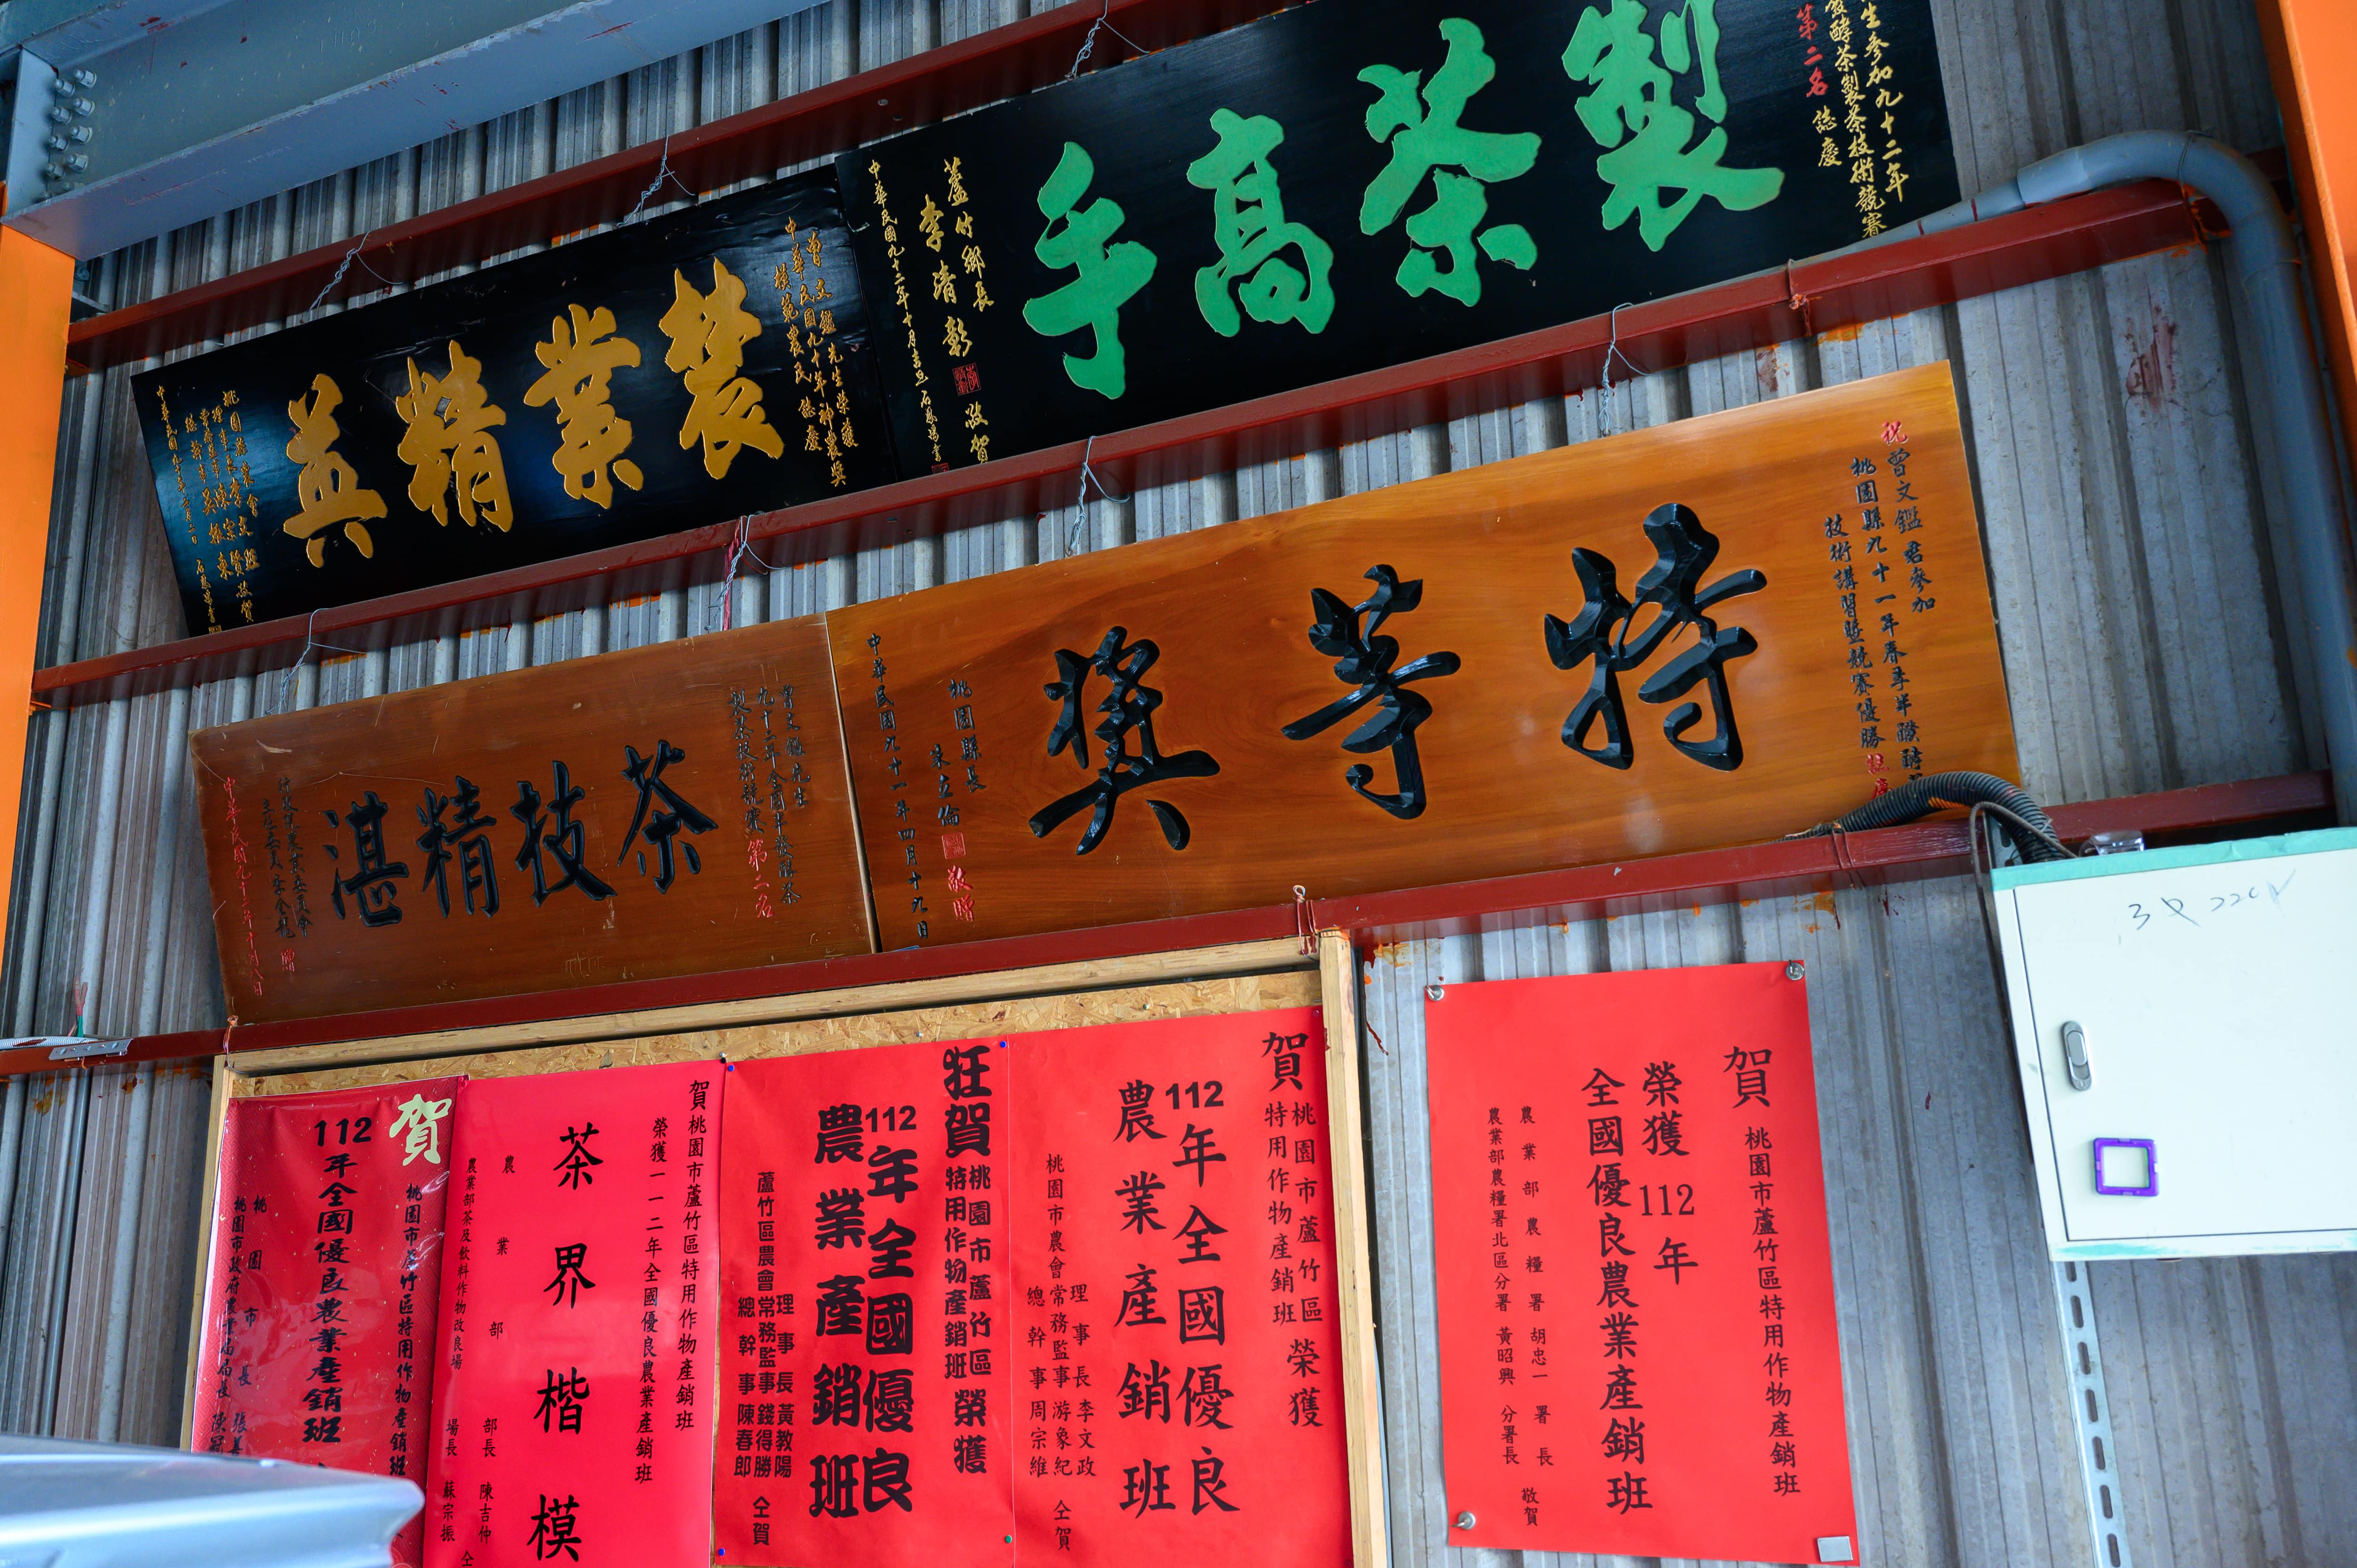 生參加九十二年
發酵茶製茶技術競賽
第二名 誌慶
製茶高手
蘆竹鄉長
李清彰 敬賀
中華民國九十二年十月吉旦
曾文鑑先生榮獲
中華民國九十年神農獎
模範農民 誌慶
農業精英
桃園縣農會
中華民國九十年
祝 曾文鑑君參加
桃園縣九十一年春季半醱酵
技術講習暨競賽優勝 誌慶
特等獎
桃園縣長
朱立倫 敬贈
中華民國九十一年四月十九日
曾文鑑先生
九十二年全國半發酵茶
製茶技術競賽第二名
茶技精湛
中華民國九十二年十月八日
賀
桃園市蘆竹區特用作物產銷班
榮獲112年
全國優良農業產銷班
農業部農糧署 胡忠一 署長
農業部農糧署北區分署 黃昭興 分署長 敬賀
賀
桃園市蘆竹區
特用作物產銷班 榮獲
112年全國優良
農業產銷班
桃園市農會
理事長 李文政
常務監事 游象紀
總幹事 周宗維
仝賀
狂賀
桃園市蘆竹區
特用作物產銷班 榮獲
112年全國優良
農業產銷班
蘆竹區農會
理事長 黃教陽
常務監事 錢得勝
總幹事 陳春郎
仝賀
賀桃園市蘆竹區特用作物產銷班
榮獲一一二年全國優良農業產銷班
茶界楷模
農業部 部長 陳吉仲
農業部茶及飲料作物改良場 場長 蘇宗振
仝
賀
桃園市蘆竹區特用作物產銷班
112年全國優良農業產銷班
桃園市長 張善
桃園市政府農業局局長 陳冠